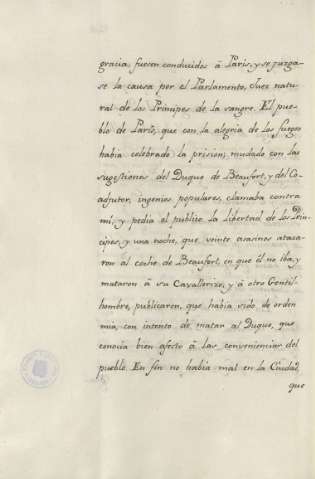 gracia, fuesen conducidos â Paris, y se juzga-
se la causa por el Parlamento, Juez natu-
ral de los Principes de la sangre. El pue-
blo de Paris, que con la alegria de los fuegos
habia celebrado la prision, mudado con las
sugestiones del Duque de Beaufort, y del Co-
adjutor, ingenios populares, clamaba contra
mi, y pedia el publico la libertad de los Prin-
cipes, y una noche, que veinte asesinos ataca-
ron al coche de Beaufort, en que él no iba, y
mataron â su Cavallerizo, y â otro Gentil-
hombre, publicaron, que habia sido de orden
mia, con intento de matar al Duque, que
conocia bien afecto â las conveniencias del
pueblo. En fin no habia mal en la Ciudad,
que